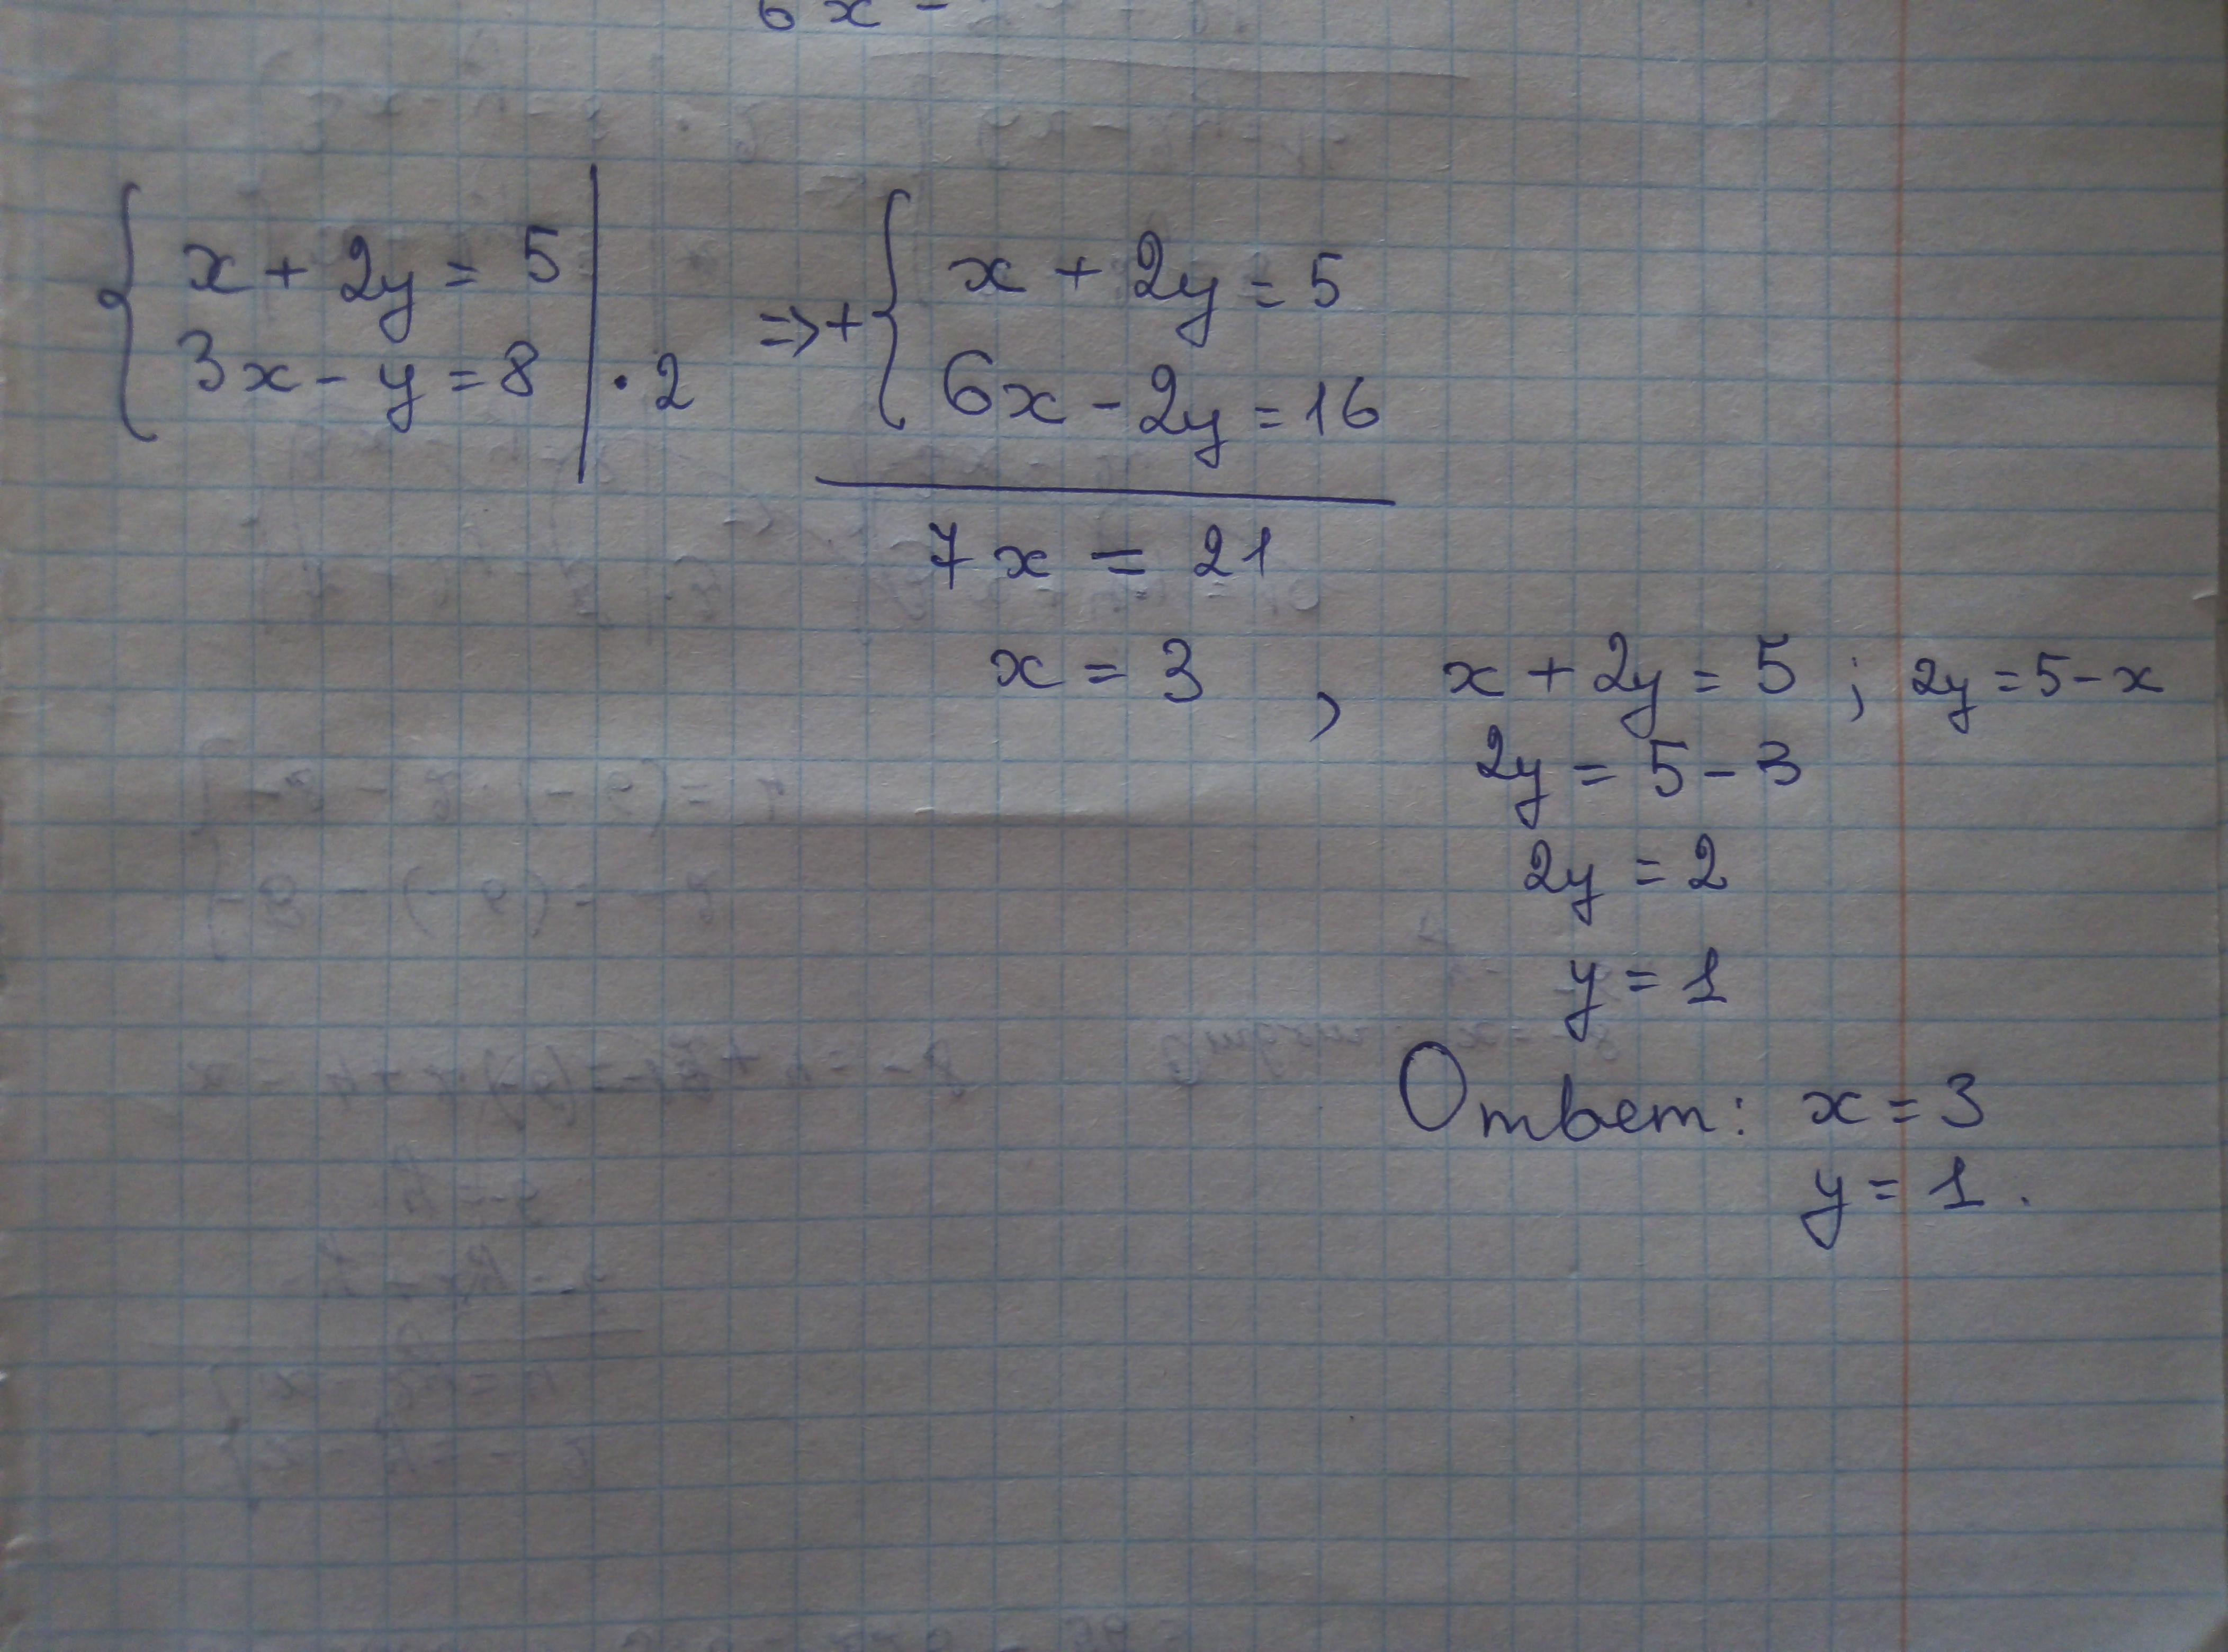 6x -
{ x + 2y = 5 |
3x - y = 8 | · 2
=> + { x + 2y = 5
6x - 2y = 16
7x = 21
x = 3 , x + 2y = 5 ; 2y = 5 - x
2y = 5 - 3
2y = 2
y = 1
Ответ: x = 3
y = 1.